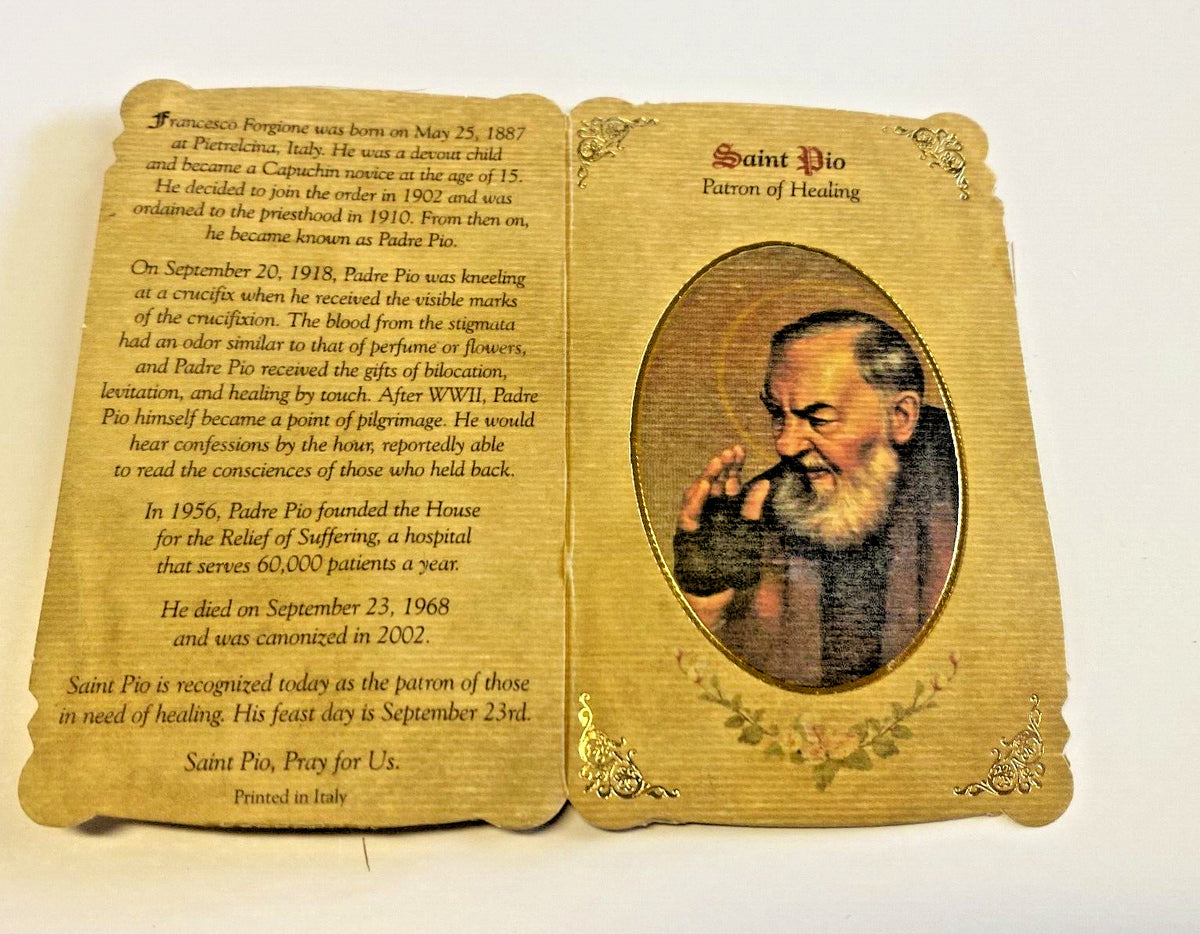 Francesco Forgione was born on May 25, 1887
at Pietrelcina, Italy. He was a devout child
and became a Capuchin novice at the age of 15.
He decided to join the order in 1902 and was
ordained to the priesthood in 1910. From then on,
he became known as Padre Pio.
On September 20, 1918, Padre Pio was kneeling
at a crucifix when he received the visible marks
of the crucifixion. The blood from the stigmata
had an odor similar to that of perfume or flowers,
and Padre Pio received the gifts of bilocation,
levitation, and healing by touch. After WWII, Padre
Pio himself became a point of pilgrimage. He would
hear confessions by the hour, reportedly able
to read the consciences of those who held back.
In 1956, Padre Pio founded the House
for the Relief of Suffering, a hospital
that serves 60,000 patients a year.
He died on September 23, 1968
and was canonized in 2002.
Saint Pio is recognized today as the patron of those
in need of healing. His feast day is September 23rd.
Saint Pio, Pray for Us.
Printed in Italy
Saint Pio
Patron of Healing